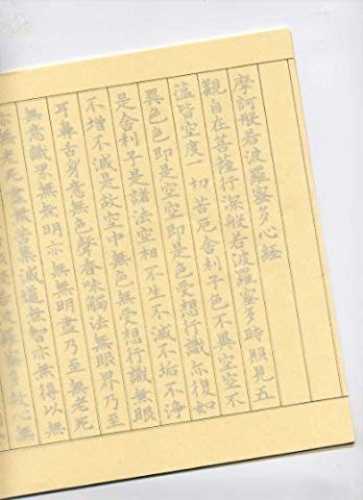 摩訶般若波羅蜜多心経
觀自在菩薩行深般若波羅蜜多時照見五
蘊皆空度一切苦厄舎利子色不異空空不
異色色即是空空即是色受想行識亦復如
是舎利子是諸法空相不生不滅不垢不浄
不增不減是故空中無色無受想行識無眼
耳鼻舌身意無色聲香味觸法無眼界乃至
無意識界無無明亦無無明盡乃至無老死
亦無老死盡無苦集滅道無智亦無得以無
故心無